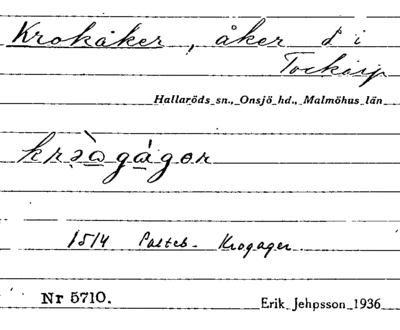 Krokåker, åker i
Tockarp
Hallaröds sn., Onsjö hd., Malmöhus län
1514 Pasteb. Krogager
Nr 5710.
Erik Jehpsson 1936